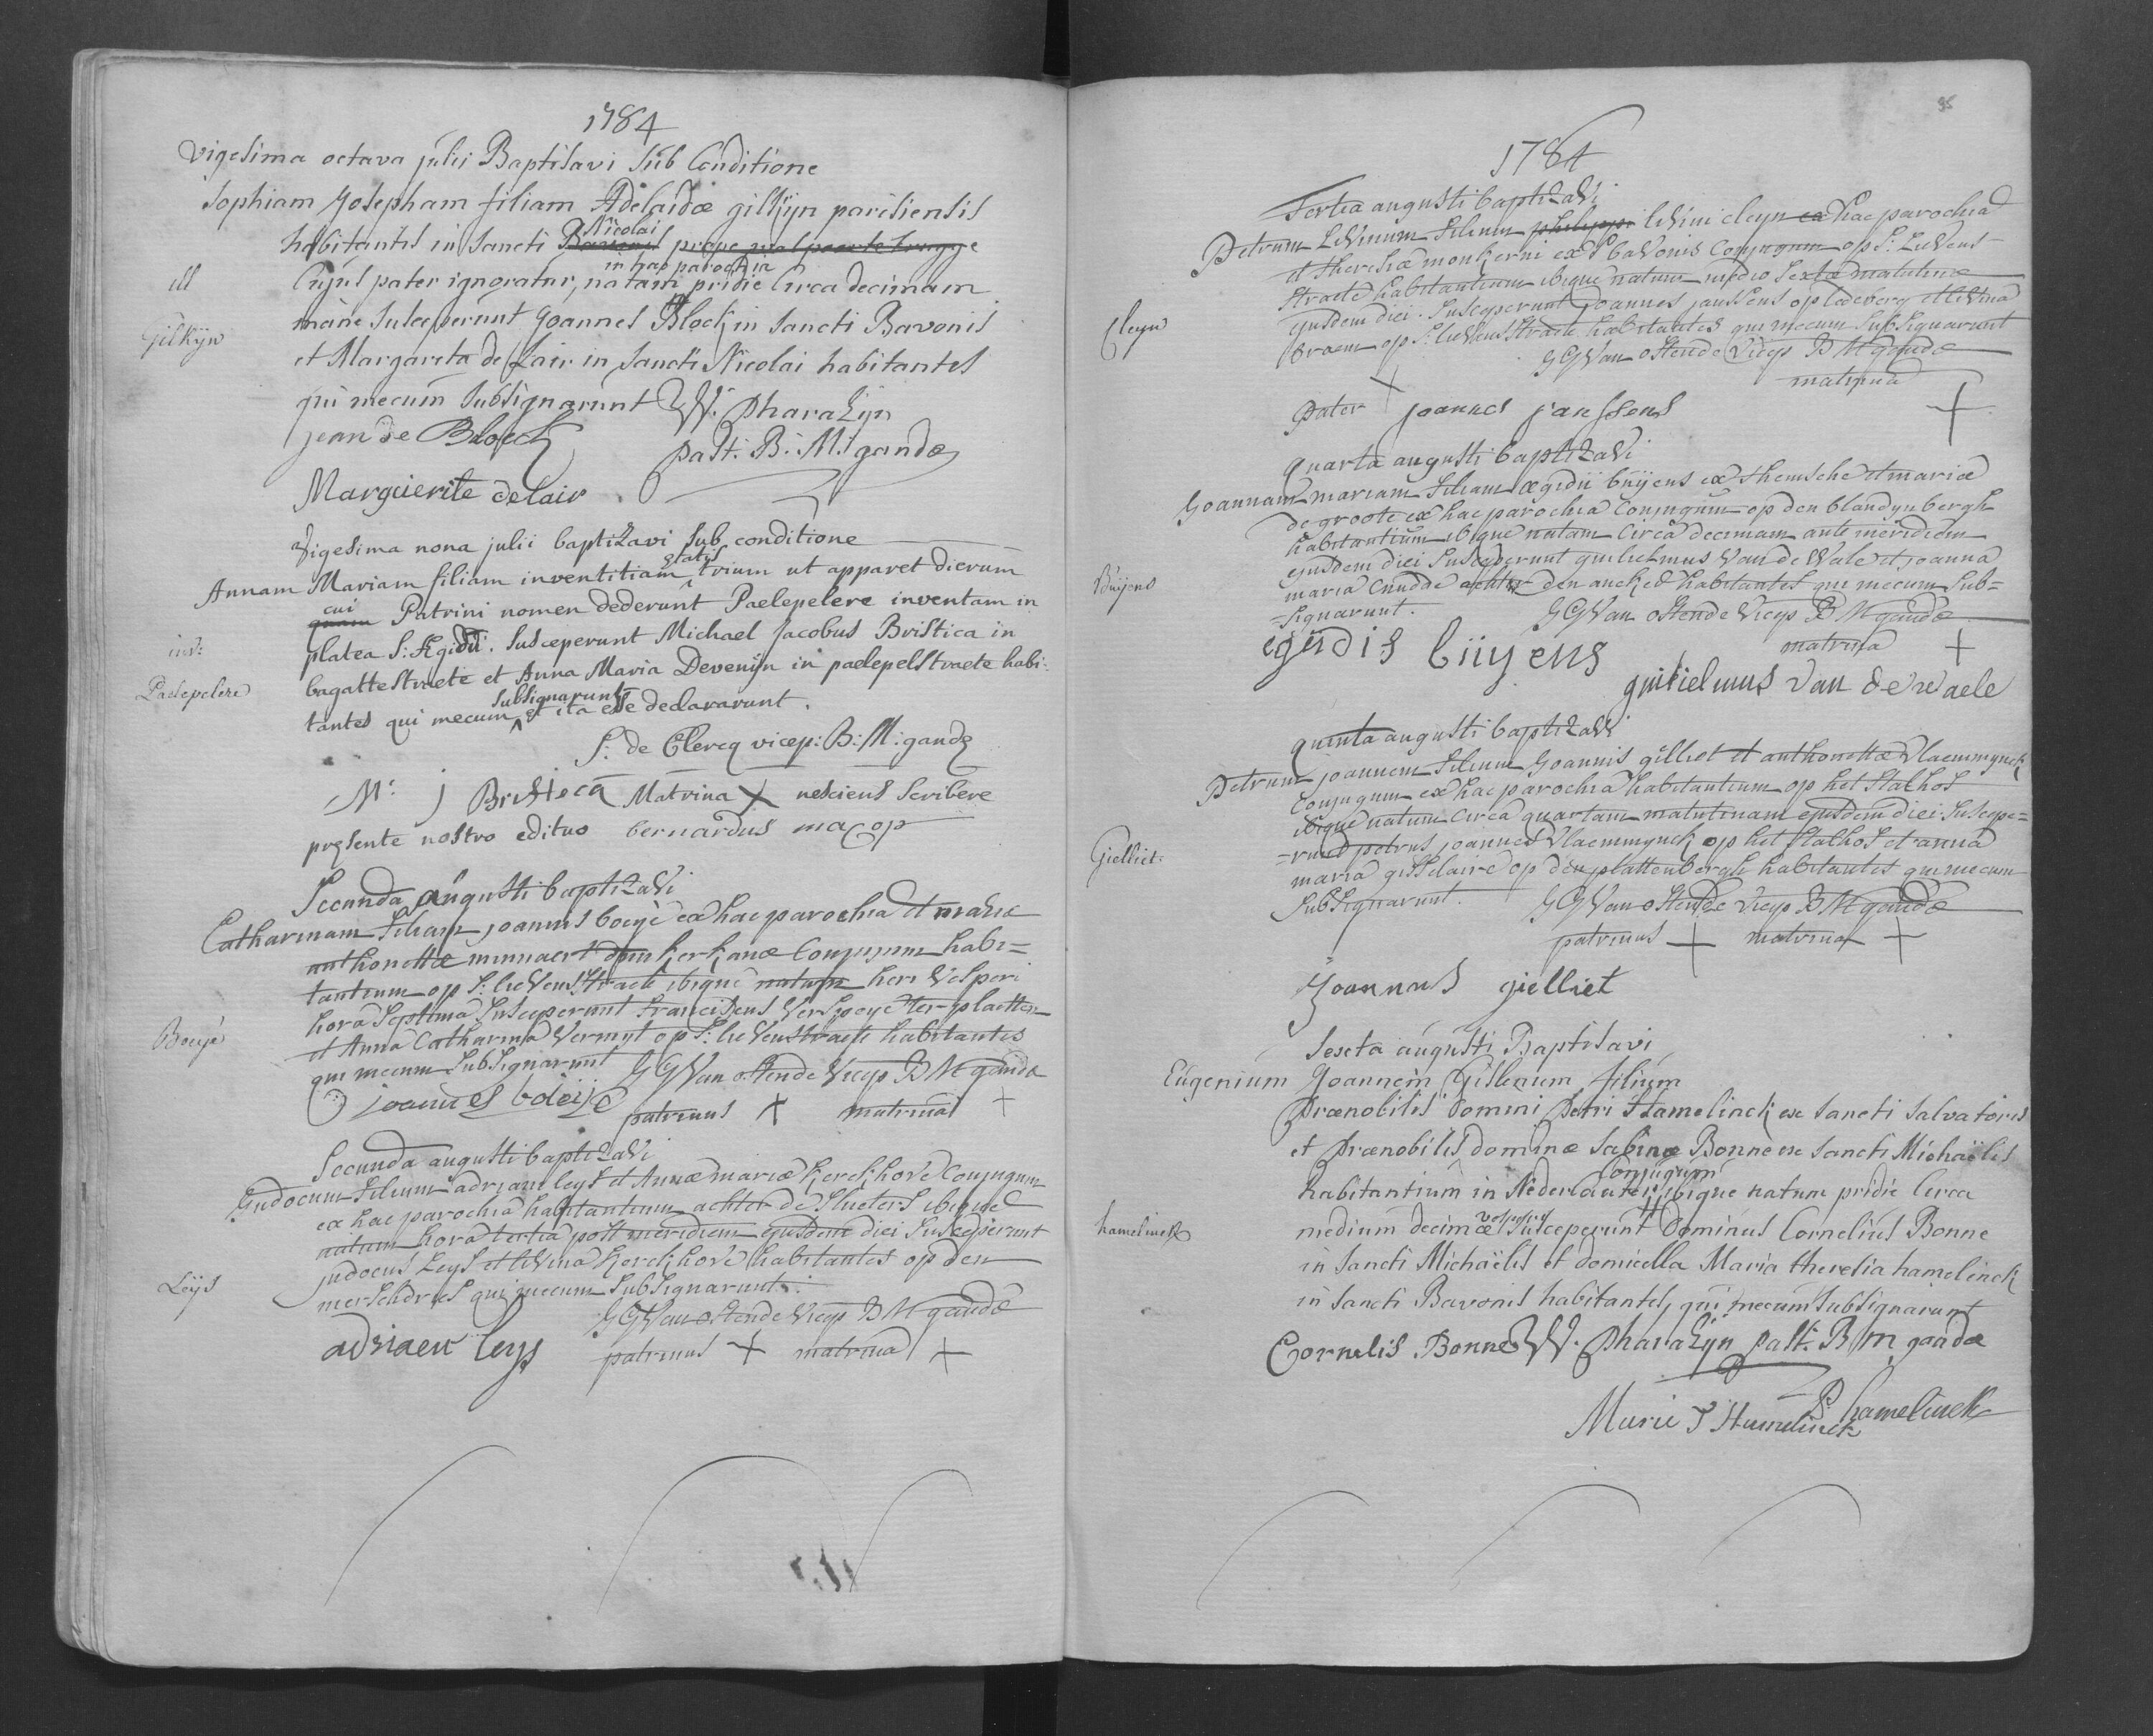 1784
Vigesima octava julii Baptisavi sub Conditione
Sophiam Josepham filiam Adelaidæ gilkijn parisiensis
Nicolai
habitantis in Sancti Bavonis prope walpoorte brugge
in hac parochia
ill
Cujus pater ignoratur, natam pridie Circa decimam
Gilkijn
mane Susceperunt Joannes Block in Sancti Bavonis
et Margareta de Lair in Sancti Nicolai habitantes
qui mecum Subsignarunt W. Pharazijn
jean de Block past. B. M. gandæ
Marguerite delair
Vigesima nona julii baptizavi sub conditione
ætatis
Annam Mariam filiam inventitiam trium ut apparet dierum
cui
quam Patrini nomen dederunt Paelepelere inventam in
inv:
platea S: Ægidii. Susceperunt Michael Jacobus Bristica in
Paelepelere
bagattestraete et Anna Maria Devenijn in paelepelstraete habi-
subsignarunt
tantes qui mecum et ita esse declararunt.
S: de Clercq vicep: B: M: gandę
M: j Bristica Matrina X nesciens scribere
pręsente nostro edituo bernardus macop
Secunda augusti baptizavi
Catharinam filiam joannis boeijé ex hac parochia et mariæ
anthonettæ minnaert dunkerkanæ Conjugum habi=
tantium op S: lievens straete ibique natam heri vesperi
hora septima Susceperunt franciscus Verspeye ter platten
Boeijé
et Anna Catharina Vermijt op S: lievenstraete habitantes
qui mecum Subsignarunt GGVan ostende Vicep B M gandæ
joannes boeije patrinus X matrina +
Secunda augusti baptizavi
Judocum filium adriani leys et Annæ mariæ kerckhove Conjugum
ex hac parochia habitantium achter de slueters ibique
natum hora tertia post meridiem ejusdem diei Susceperunt
judocus Leys et livina kerckhove habitantes op den
Leÿs
mersch qui mecum Subsignarunt.
GGVan ostende Vicep B M gandæ
adriaen leys patrinus + matrina +
95
1784
Tertia augusti baptizavi
Petrum Livinum filium philippi livini cleyn ex hac parochia
et theresiæ monkerni ex S bavonis Conjugum op S: Lievens-
straete habitantium ibique natum medio sextæ matutinæ
Cleyn
ejusdem diei. Susceperunt joannes janssens op ledeberg et livina
braem op S: lievens straete habitantes qui mecum Subsignarunt
GGVan ostende Vicep B M gandæ
Pater X joannes janssens matrina +
quarta augusti baptizavi
Joannam mariam filiam ægidii buijens ex themsche et mariæ
de groote ex hac parochia Conjugum op den blandynbergh
habitantium ibique natam Circa decimam ante meridiem
ejusdem diei Susceperunt guilielmus Van de Wale et joanna
Buijens
maria Cnudde achter den ancker habitantes qui mecum Sub=
=signarunt. GGVan ostende Vicep B M gandæ
egiidis biiyens matrina +
guilielmus van de waele
quinta augusti baptizavi
Petrum joannem filium Joannis gilliet et anthonettæ Vlaemmynck
Conjugum ex hac parochia habitantium op het stalhof
ibique natum Circa quartam matutinam ejusdem diei. Suscepe=
Gielliet.
=runt petrus joannes Vlaemmynck op het stalhof et anna
maria gisselaire op den plattenbergh habitantes qui mecum
Subsignarunt. GGVan ostende Vicep B M gandæ
patrinus + matrina +
Joannus gielliet
Sexta augusti Baptisavi
Eugenium Joannem Gislenum filium
Prænobilis domini Petri Hamelinck ex Sancti Salvatoris
et Prænobilis dominæ Sabinæ Bonne ex Sancti Michaëlis
Conjugum
habitantium in Nederlauter, ibique natum pridie Circa
vesperi
hamelinck
medium decimæ Susceperunt Dominus Cornelius Bonne
in Sancti Michaëlis et domicella Maria theresia hamelinck
in Sancti Bavonis habitantes, qui mecum Subsignarunt
Cornelis Bonne W. Pharazijn past. B M gandæ
P: hamelinck
Marie T Hamelinck